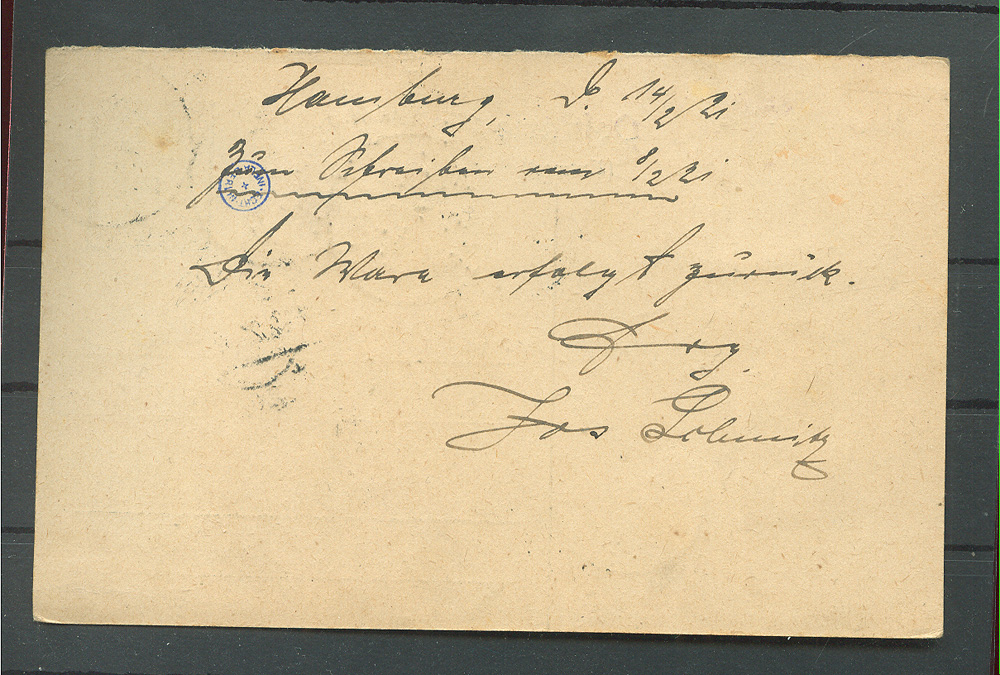 Hamburg, d. 14/2 21
Zum Schreiben vom 8/2 21
Die Ware erfolgt zurück.
Jos Schmitz